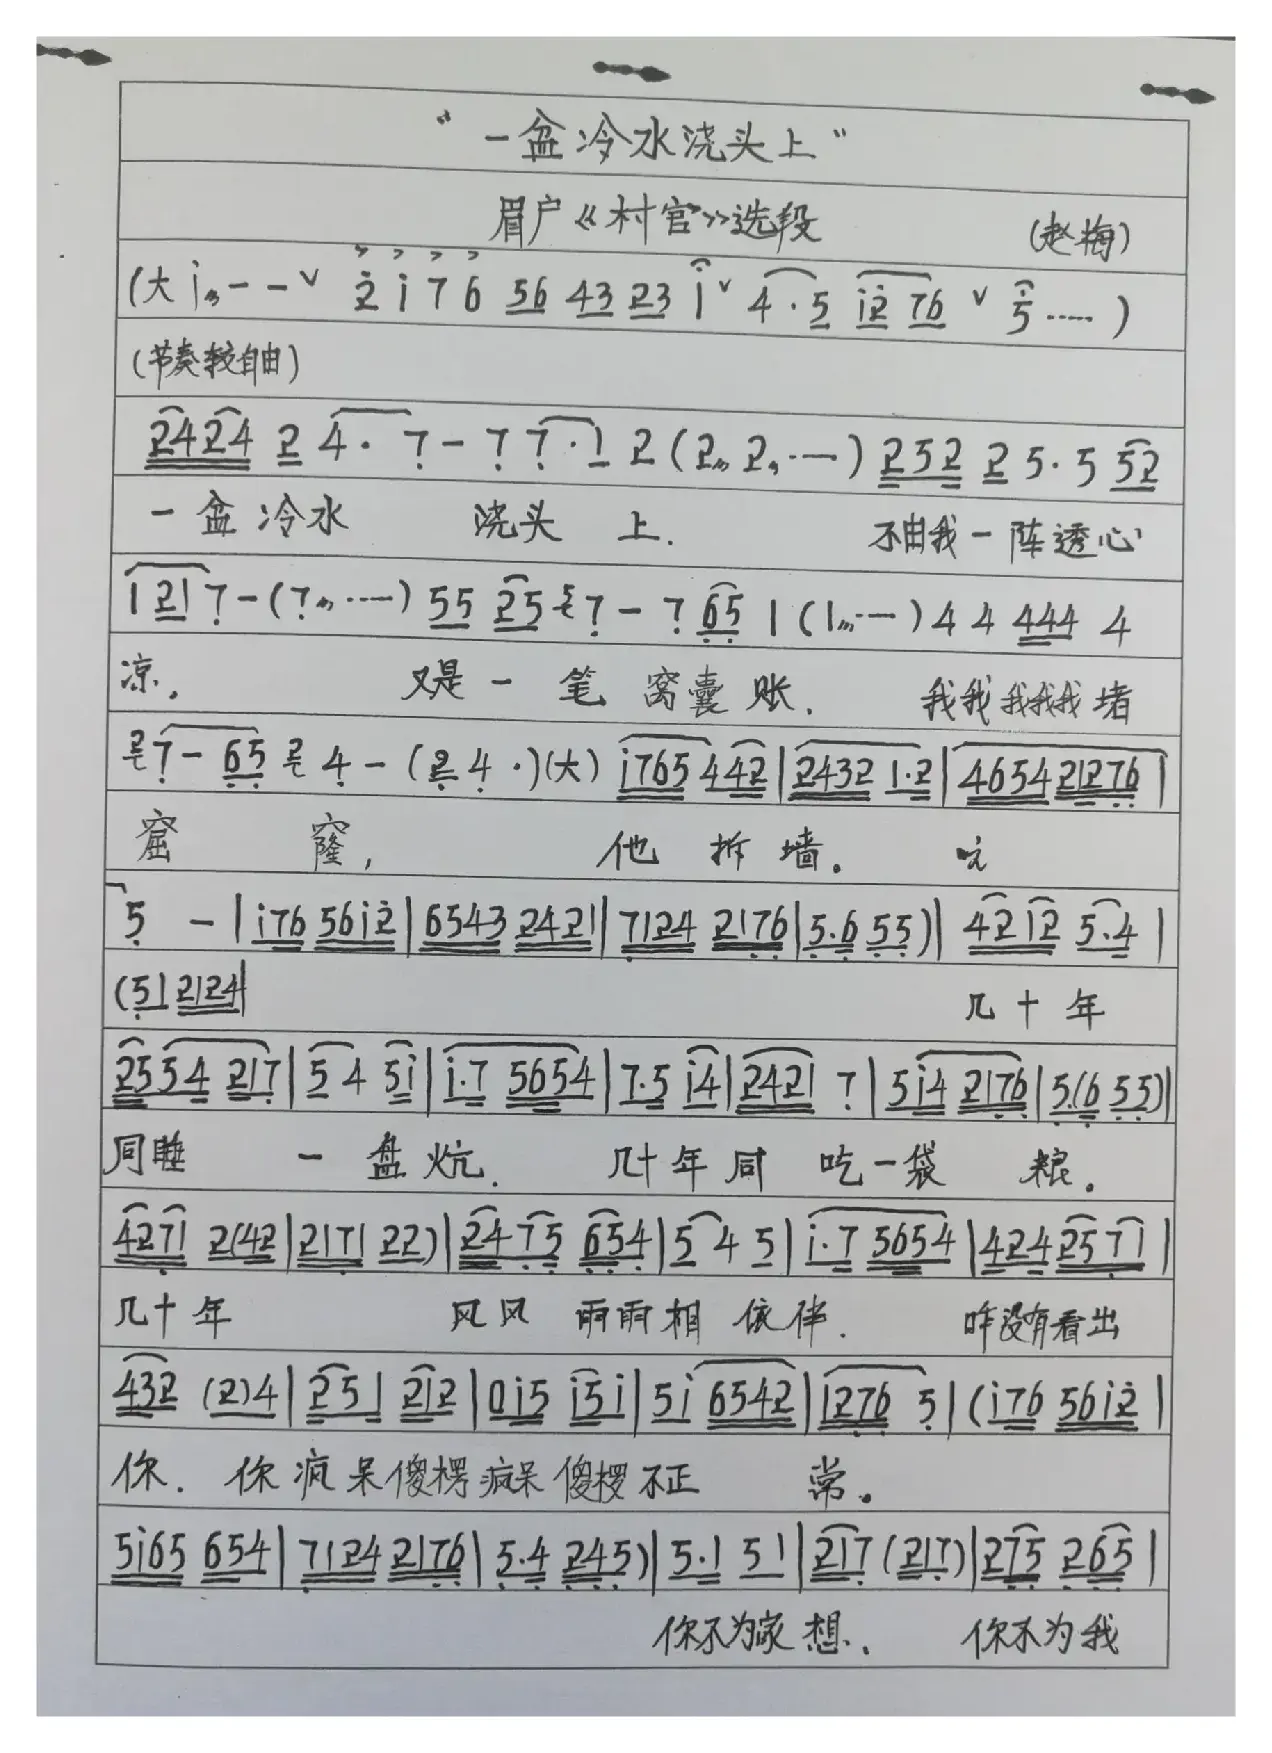 “一盆冷水浇头上”
眉户《村官》选段 (赵梅)
(大 i〃 - - ∨ 2̇ i 7 6 56 43 23 i ∨ 4 · 5 i2̇ 76 ∨ 5 ····· )
(节奏较自由)
2424 2 4 · 7 - 7 7 · 1 2 ( 2〃 2, ·- - ) 252 2 5 · 5 52
一盆冷水 浇头 上. 不由我一阵透心
1 21 7 - ( 7〃 ···· - ) 55 25 7 - 7 65 1 ( 1〃 ·- - ) 4 4 444 4
凉, 又是一 笔 窝囊 账. 我我我我我堵
7 - 65 4 - ( 2 4 · )(大) i765 442 | 2432 1·2 | 4654 2176 |
窟 窿, 他 拆 墙。
5 - | i76 56i2̇ | 6543 2421 | 7124 2176 | 5·6 55 ) | 42 12 5·4 |
(51 2124|
几十年
2554 217 | 5 4 5i | i·7 5654 | 7·5 i4 | 2421 7 | 5i4 2176 | 5·(6 55) |
同睡 一 盘 炕. 几十年同 吃一袋 粮。
4271 2(42 | 2171 22) | 2475 654 | 5 4 5 | i·7 5654 | 424 2571 |
几十年 风风 雨雨相 依伴. 咋没有看出
432 (2)4 | 251 212 | 0i5 i5i | 5i 6542 | 1276 5 | (i76 56i2̇ |
你. 你疯呆傻楞疯呆傻楞不正 常。
5i65 654 | 7124 2176 | 5·4 245) | 5·1 51 | 217 (217) | 275 265 |
你不为家想. 你不为我